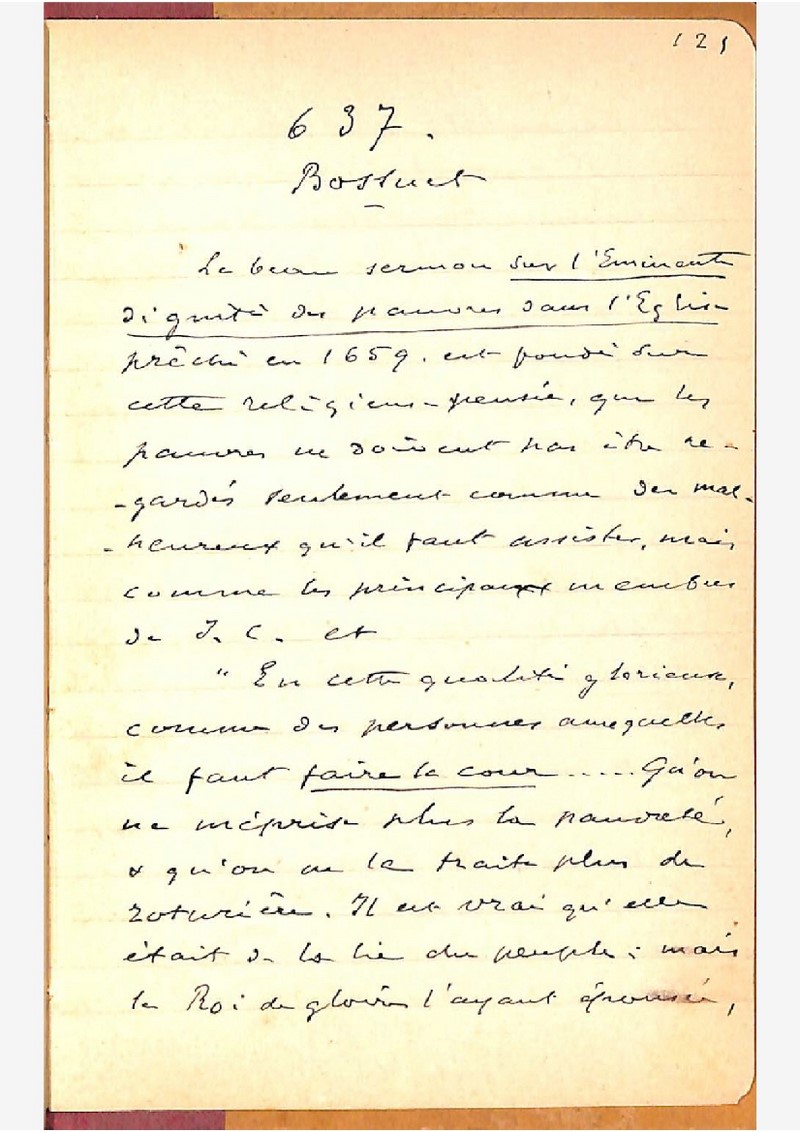 121
637.
Bossuet
Le beau sermon sur l'Eminente
dignité des pauvres dans l'Eglise
prêché en 1659. est fondé sur
cette religieuse pensée, que les
pauvres ne doivent pas être re-
-gardés seulement comme des mal-
-heureux qu'il faut assister, mais
comme les principaux membres
de J. C. et
" En cette qualité glorieuse,
comme des personnes auxquelles
il faut faire la cour ..... Qu'on
ne méprise plus la pauvreté,
& qu'on ne la traite plus de
roturière. Il est vrai qu'elle
était de la lie du peuple : mais
le Roi de gloire l'ayant épousée,